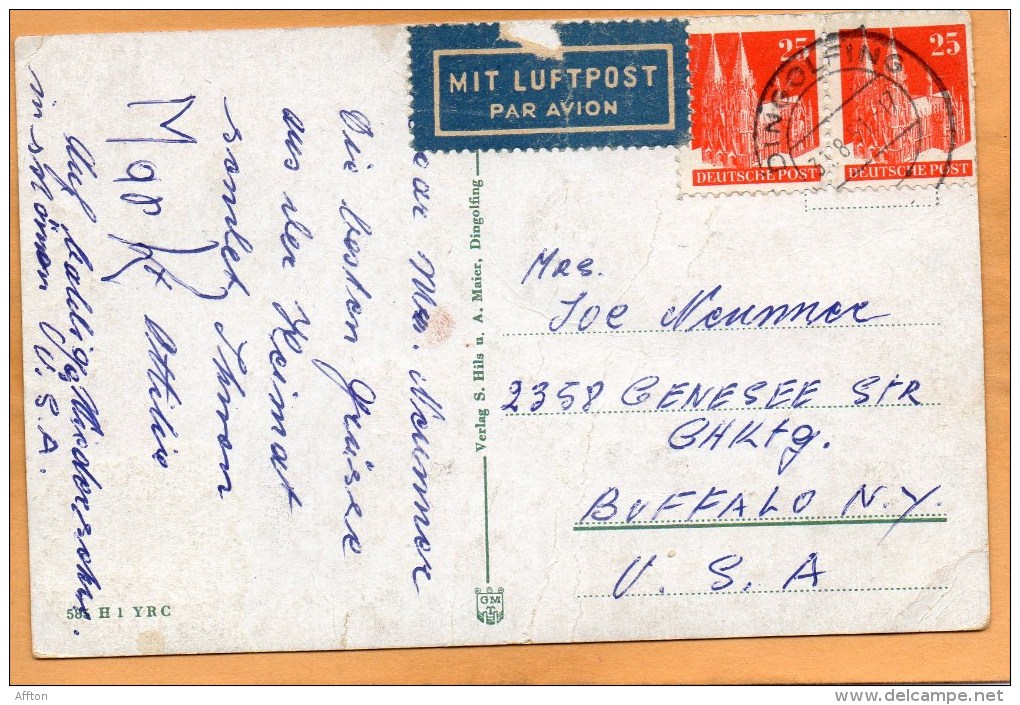 MIT LUFTPOST
PAR AVION
25
25
DEUTSCHE POST
DEUTSCHE POST
DINGOLFING
ear Mrs. Neumner
Die besten Grüsse
aus der Heimat
sendet Ihnen
Ottilie
Auf baldiges Wiedersehn.
in schönen U.S.A.
Verlag S. Hils u. A. Maier, Dingolfing
GM
Mrs.
Joe Neumner
2358 GENESEE STR
CHKTG.
BUFFALO N.Y.
U. S. A
585 H 1 YRC
Affton
delcampe.net